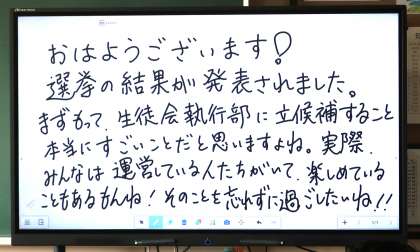 おはようございます!
選挙の結果が発表されました。
まずもって、生徒会執行部に立候補すること
本当にすごいことだと思いますよね。実際、
みんなは運営している人たちがいて、楽しめている
こともあるもんね!そのことを忘れずに過ごしたいね!!